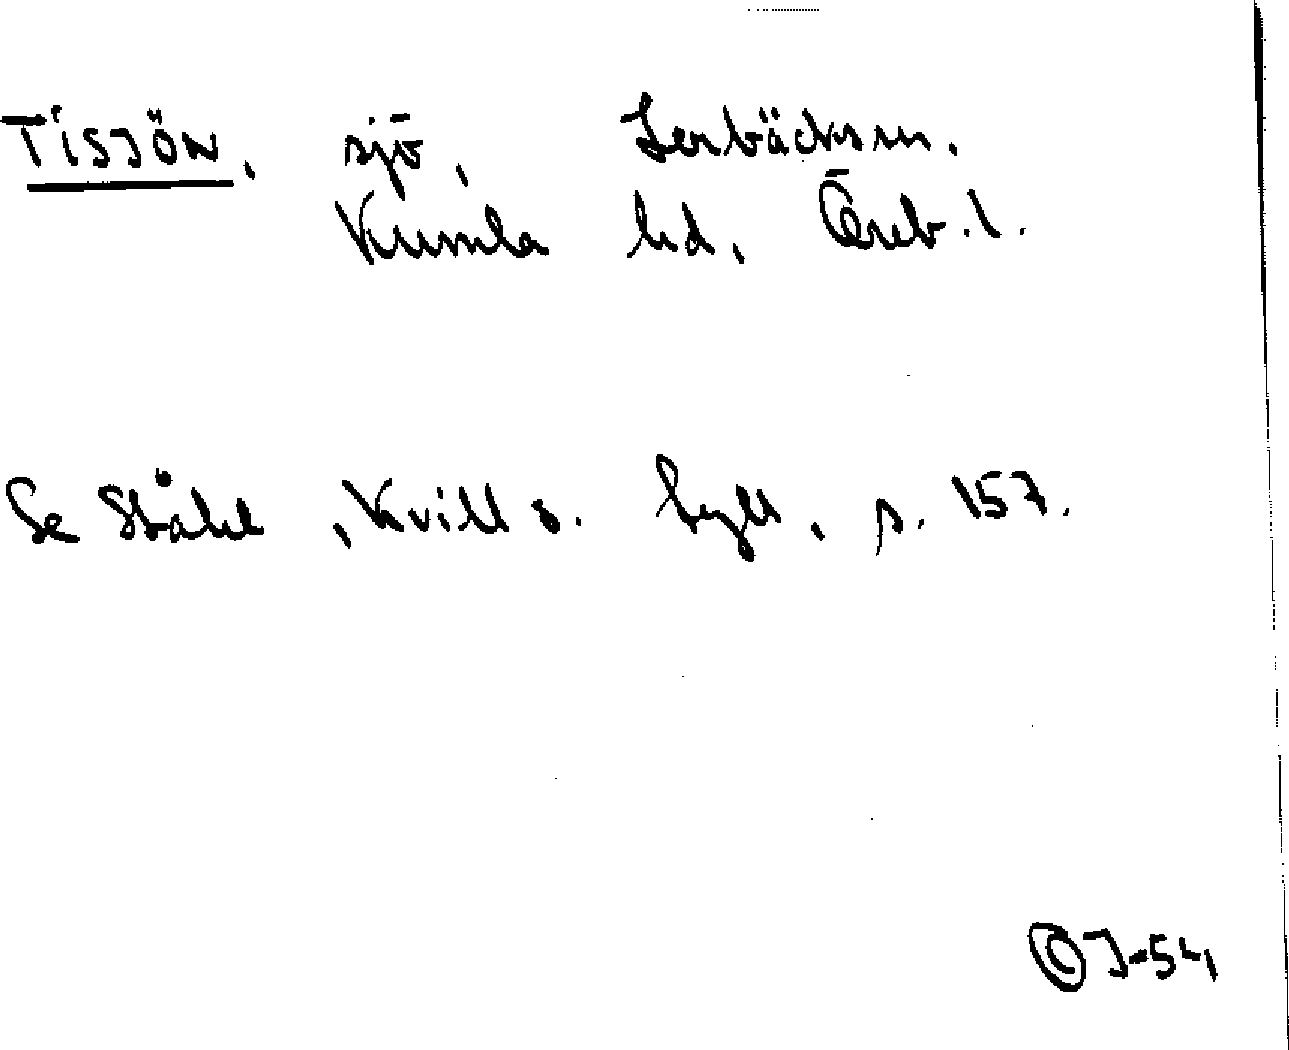 TiSJÖN, sjö, Lerbäcks sn.
Kumla hd, Öreb. l.
Se Ståhl, Kvill o. bygd, s. 157.
©J-54